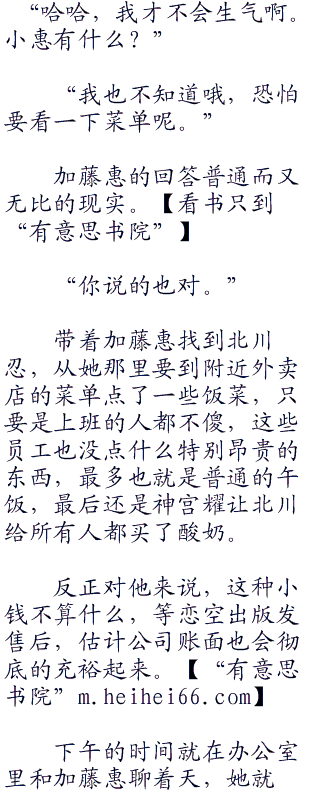 “哈哈，我才不会生气啊。
小惠有什么？”
“我也不知道哦，恐怕
要看一下菜单呢。”
加藤惠的回答普通而又
无比的现实。【看书只到
“有意思书院”】
“你说的也对。”
带着加藤惠找到北川
忍，从她那里要到附近外卖
店的菜单点了一些饭菜，只
要是上班的人都不傻，这些
员工也没点什么特别昂贵的
东西，最多也就是普通的午
饭，最后还是神宫耀让北川
给所有人都买了酸奶。
反正对他来说，这种小
钱不算什么，等恋空出版发
售后，估计公司账面也会彻
底的充裕起来。【“有意思
书院”m.heihei66.com】
下午的时间就在办公室
里和加藤惠聊着天，她就